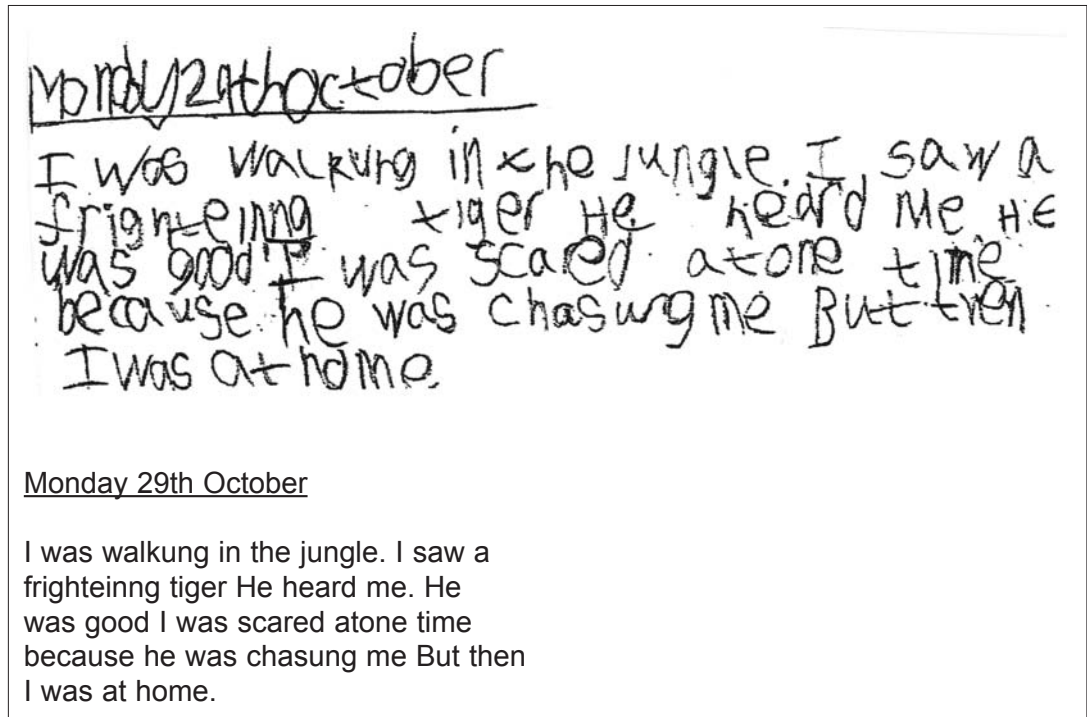 Mondy 29th October
I was walkung in the jungle. I saw a
frighteinng tiger He heard me HE
was good I was scared. atone time
because he was chasung me But then
I was at home.
Monday 29th October
I was walkung in the jungle. I saw a
frighteinng tiger He heard me. He
was good I was scared atone time
because he was chasung me But then
I was at home.